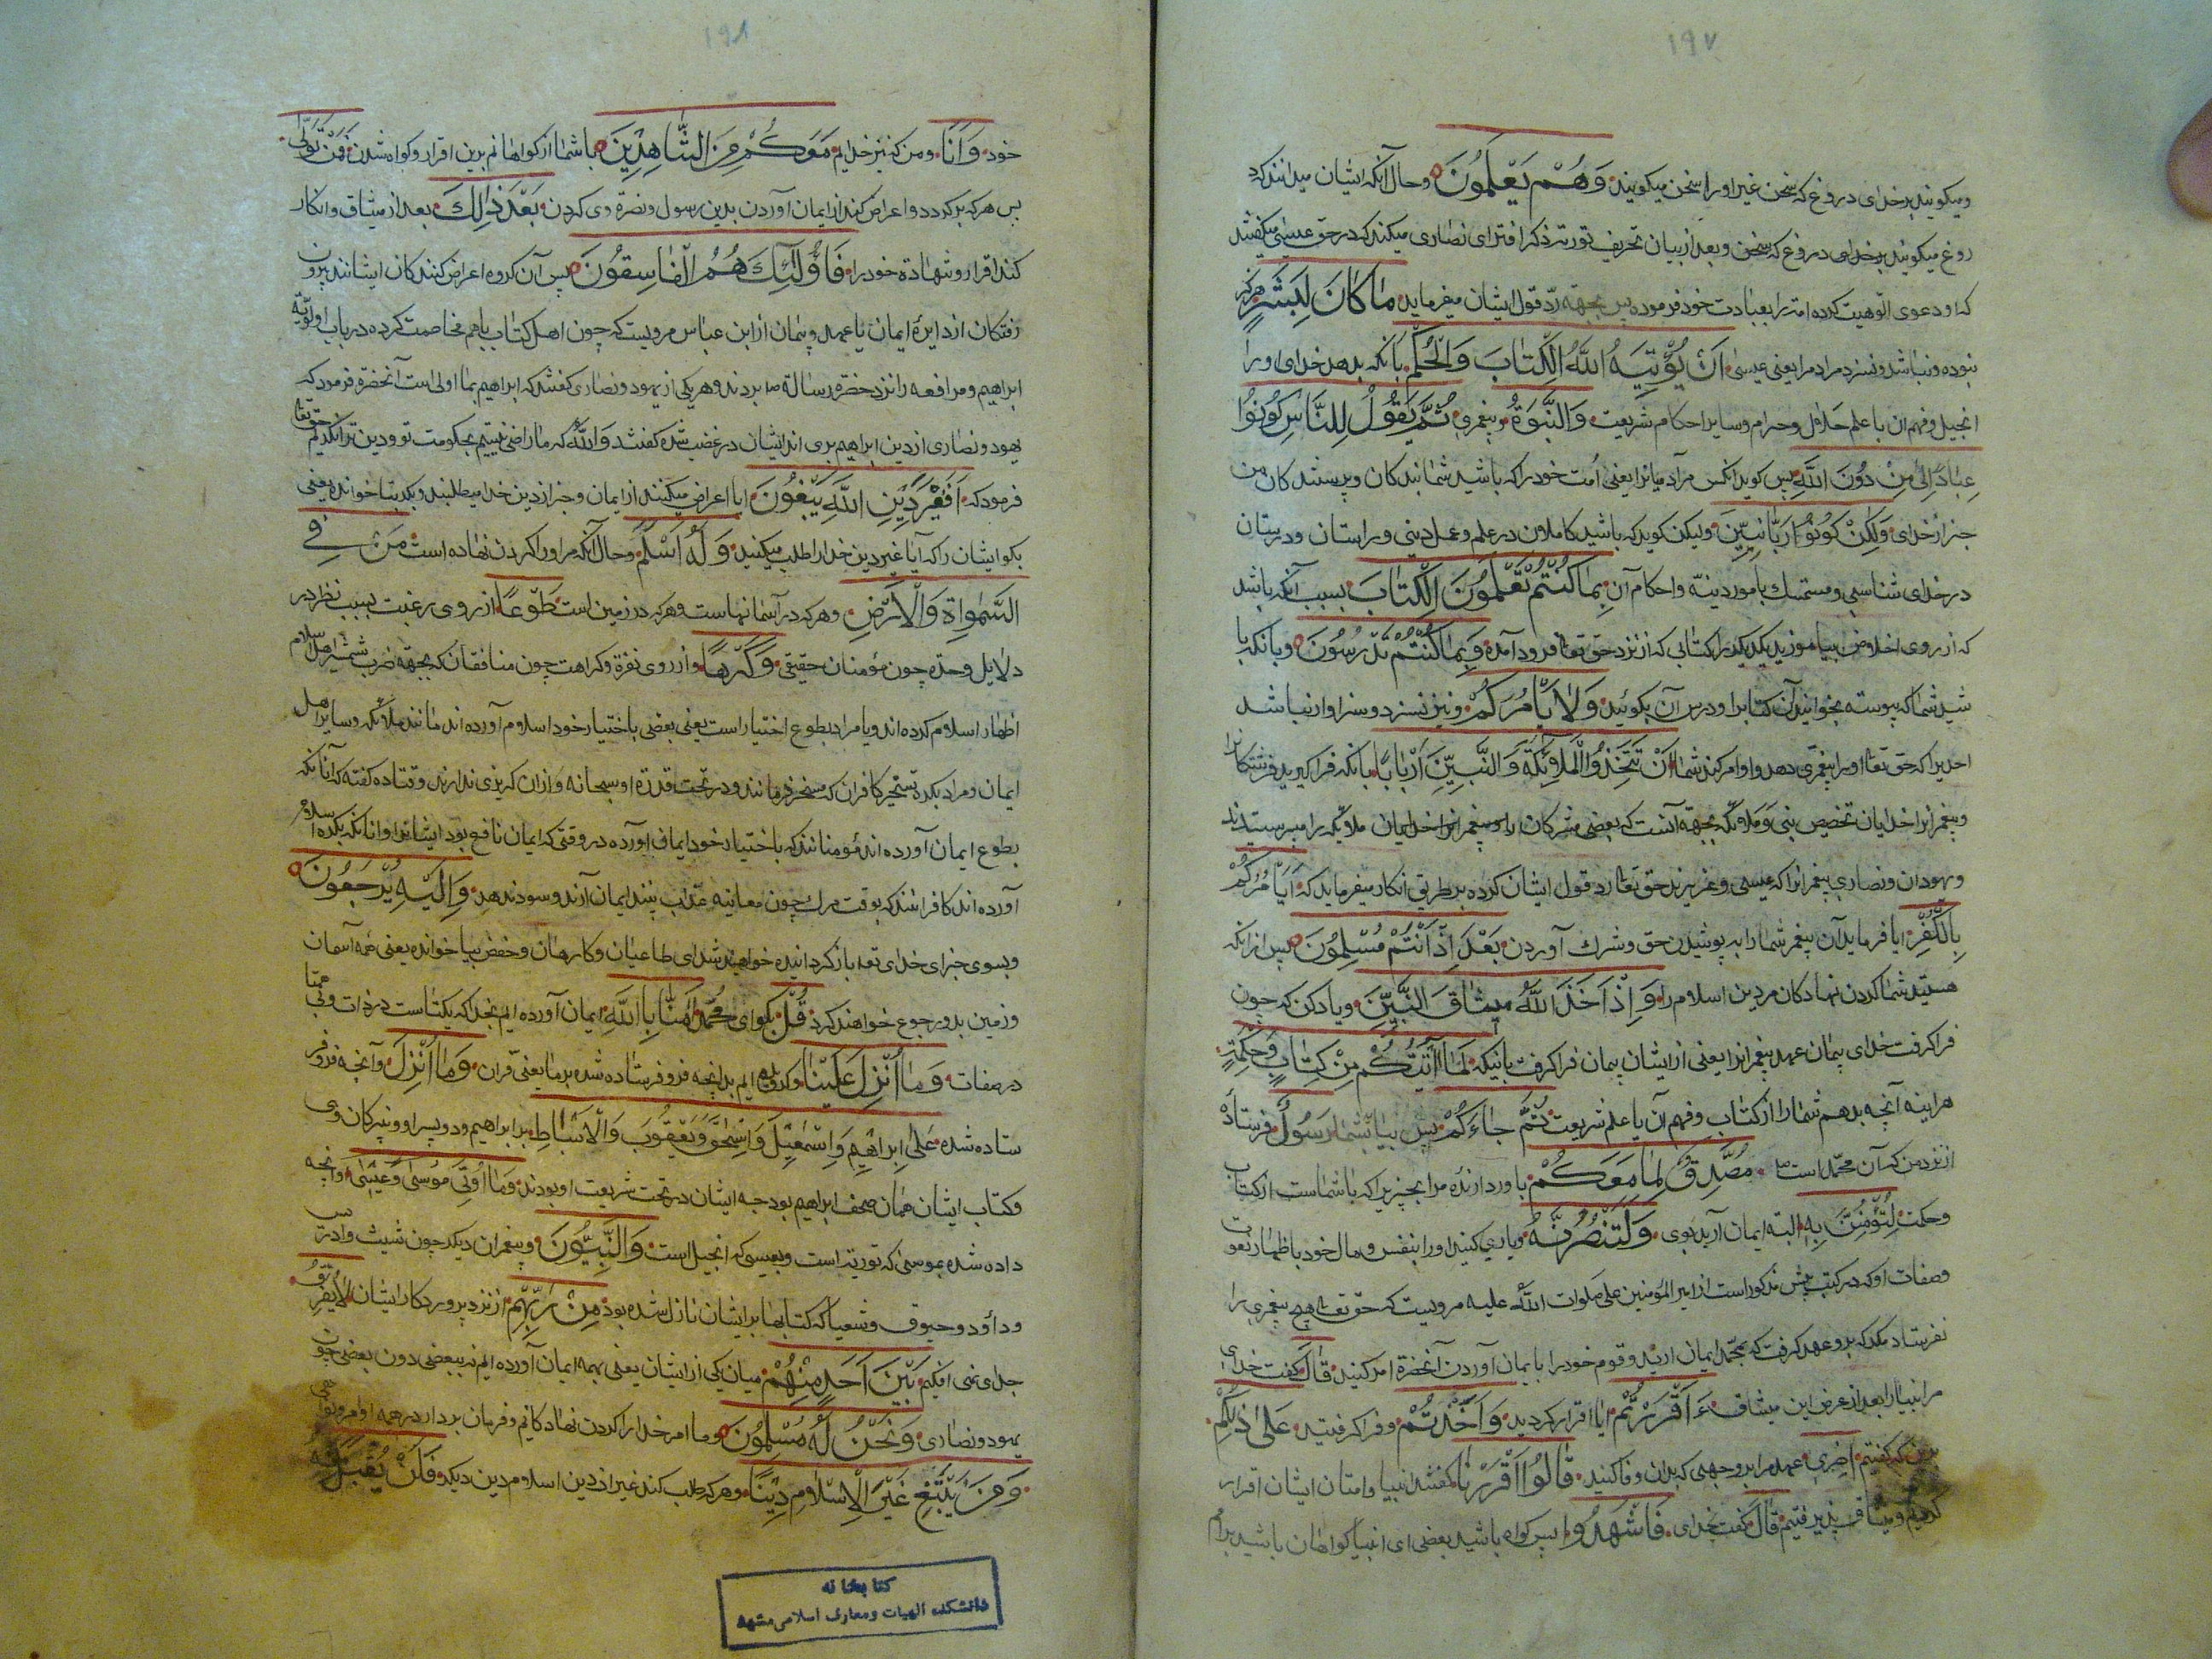 ١٩٧
ومیکویند بر خدای دروغ که سخن غیر او را سخن میکویند وَهُمْ یَعْلَمُونَ وحال آنکه ایشان میدانند که د
روغ میکویند بر خدای دروغ که سخن وبعد از بیان تحریف توریة ذکر افترای نصاری میکند که در حق عیسی میکفتند
که او دعوی الوهیت کرده امة را بعبادت خود فرموده پس بجهة رد قول ایشان میفرماید مَا کَانَ لِبَشَرٍ هرکز
نبوده ونباشد ونسزد مراد مرا یعنی عیسی اَنْ یُؤْتِیَهُ اللهُ الْکِتَابَ وَالْحُکْمَ بآنکه بدهد خدای او را
انجیل وفهم ان با علم حلال وحرام وسایر احکام شریعت وَالنُّبُوَّةَ وپیغمری ثُمَّ یَقُولُ لِلنَّاسِ کُونُوا
عِبَادًا لِی مِنْ دُونِ اللهِ پس کوید انکس مرآدمیانرا یعنی اُمت خود را که باشید شما بندکان وپرستندکان من
جز از خدای وَلٰکِنْ کُونُوا رَبَّانِیِّینَ ولیکن کوید که باشید کاملان در علم وعمل دینی وراستان ودرستان
در خدای شناسی ومتمسک بامور دینیه واحکام آن بِمَا کُنْتُمْ تَعْلَمُونَ الْکِتَابَ بسبب آنکه باشد
که از روی اخلاص بیاموزید یکدیکر را کتابی که از نزد حق تعا فرود آمده وَبِمَا کُنْتُمْ تَدْرُسُونَ وبانکه با
شید شما که پیوسته بخوانید آن کتابرا ودرس آن بکوئید وَلَا یَأْمُرَکُمْ ونیز نسزد وسزاوار نباشد
احدیرا که حق تعا او را پیغمری دهد واو امر کند شما را اَنْ تَتَّخِذُوا الْمَلَائِکَةَ وَالنَّبِیِّینَ اَرْبَابًا بانکه فرا کیرید فرشتکانرا
وپیغمرانرا خدایان تخصیص بنی وملائکه بجهة آنست که بعضی مشرکان ملائکه را میپرستیدند
ویهودان ونصاری پیغمرانرا که عیسی وعزیرند حق تعا رد قول ایشان کرده بر طریق انکار میفرماید که اَیَأْمُرُکُمْ
بِالْکُفْرِ ایا فرماید آن پیغمر شما را به پوشیدن حق وشرک آوردن بَعْدَ اِذْ اَنْتُمْ مُسْلِمُونَ پس از انکه
هستید شما کردن نهادکان مر دین اسلام را وَاِذْ اَخَذَ اللهُ مِیثَاقَ النَّبِیِّینَ ویاد کن که چون
فرا کرفت خدای پیمان عهد پیغمرانرا یعنی از ایشان پیمان فرا کرفت بانیکه لَمَا اٰتَیْتُکُمْ مِنْ کِتَابٍ وَحِکْمَةٍ
هراینه آنچه بدهم شما را از کتاب وفهم آن یا علم شریعت ثُمَّ جَاءَکُمْ پس بیاید شما را رَسُولٌ فرستاده
از نزد من که آن محمد است ص مُصَدِّقٌ لِمَا مَعَکُمْ باوردارنده مرانچیزیرا که با شماست از کتاب
وحکمت لَتُؤْمِنُنَّ بِهِ البته ایمان آرید بوی وَلَتَنْصُرُنَّهُ ویاری کنید او را بنفس ومال خود باظهار نعوت
وصفات او که در کتب پیش مذکور است از امیر المؤمنین علی صلوات الله علیه مرویست که حق تعا هیچ پیغمری را
نفرستاد مکر که برو عهد کرفت که بمحمد ایمان ارید وقوم خود را بایمان آوردن آنحضرة امر کنید قَالَ کفت خدای
مر انبیا را بعد از عرض این میثاق ءَاَقْرَرْتُمْ ایا اقرار کردید وَاَخَذْتُمْ وفرا کرفتید عَلٰی ذٰلِکُمْ
برین که کفتم اِصْرِی عهد مرا بر وجهی که بدان وفا کنید قَالُوا اَقْرَرْنَا کفتند انبیا وامتان ایشان اقرار
کردیم ومیثاق پذیرفتیم قَالَ کفت خدای فَاشْهَدُوا پس کواه باشید بعضی ای انبیا کواهان باشید برام
١٩٨
خود وَاَنَا ومن که نیز خدایم مَعَکُمْ مِنَ الشَّاهِدِینَ با شما از کواهانم برین اقرار وکواه شدن فَمَنْ تَوَلّٰی
پس هرکه برکردد واعراض کند از ایمان آوردن بدین رسول ونصرة وی کردن بَعْدَ ذٰلِکَ بعد از میثاق وانکار
کند اقرار وشهادة خود را فَاُولٰئِکَ هُمُ الْفَاسِقُونَ پس آن کروه اعراض کنندکان ایشانند بیرون
رفتکان از دایرۀ ایمان یا عهد وپیمان از ابن عباس مرویست که چون اهل کتاب باهم مخاصمت کرده در باب اولویة
ابراهیم ومرافعه را نزد حضرة رسالة ص بردند وهریکی از یهود ونصاری کفتند که ابراهیم بما اولی است آنحضرة فرمود که
یهود ونصاری از دین ابراهیم بری اند ایشان در غضب شده کفتند وَاللهِ که ما راضی نیستیم بحکومت تو ودین ترا نکیریم حق تعا
فرمود که اَفَغَیْرَ دِینِ اللهِ یَبْغُونَ ایا اعراض میکنند از ایمان وجز از دین خدا میطلبند وبکه بتا خوانده یعنی
بکو ایشان را که آیا غیر دین خدا را طلب میکنید وَلَهُ اَسْلَمَ وحال آنکه مر او را کردن نهاده است مَنْ فِی
السَّمٰوَاةِ وَالْاَرْضِ وهرکه در آسمانهاست وهرکه در زمین است طَوْعًا از روی رغبت بسبب نظر در
دلایل وحدة چون مؤمنان حقیقی وَکَرْهًا واز روی نفرة وکراهت چون منافقان که بجهة ضرب شمشیر اهل اسلام
اظهار اسلام کرده اند ویا مراد بطوع اختیار است یعنی بعضی باختیار خود اسلام آورده اند مانند ملائکه وسایر اهل
ایمان ومراد بکره تسخیر کافران که مسخر فرمانند ودر تحت قدرة او سبحانه واز ان کریزی ندارند وقتاده کفته که آنانکه
بطوع ایمان آورده اند مؤمنانند که باختیار خود ایمان آورده در وقتی که ایمان نافع بود ایشانرا وانانکه بکره اسلام
آورده اند کافرانند که بوقت مرک چون معاینه عذاب بینند ایمان آرند وسود ندهد وَاِلَیْهِ یُرْجَعُونَ
وبسوی جزای خدای تعا بازکردانیده خواهند شد ای طاعیان وکارهان وحفص بیا خوانده یعنی همه آسمان
وزمین بدو رجوع خواهند کرد قُلْ بکو ای محمد اٰمَنَّا بِاللهِ ایمان آورده ایم بخدا که یکتاست در ذات وبی همتا
در صفات وَمَا اُنْزِلَ عَلَیْنَا وکرویده ایم بدانچه فرو فرستاده شده بر ما یعنی قران وَمَا اُنْزِلَ وآنچه فرو فر
ستاده شده عَلٰی اِبْرَاهِیمَ وَاِسْمٰعِیلَ وَاِسْحٰقَ وَیَعْقُوبَ وَالْاَسْبَاطِ بر ابراهیم ودو پسر او ونبیرکان وی
وکتاب ایشان همان صحف ابراهیم بود چه ایشان در تحت شریعت او بودند وَمَا اُوتِیَ مُوسٰی وَعِیسٰی وآنچه
داده شده بموسی که توریة است وبعیسی که انجیل است وَالنَّبِیُّونَ وپیغمران دیکر چون شیث وادریس
وداؤد وحیوق وشعیا که کتابها بر ایشان نازل شده بود مِنْ رَبِّهِمْ از نزد پروردکار ایشان لَا نُفَرِّقُ
جدای نمی افکنیم بَیْنَ اَحَدٍ مِنْهُمْ میان یکی از ایشان یعنی بهمه ایمان آورده ایم نه ببعضی دون بعضی چون
یهود ونصاری وَنَحْنُ لَهُ مُسْلِمُونَ وما امر خدا را کردن نهادکانیم وفرمان بردار در همه اوامر ونواهی
وَمَنْ یَبْتَغِ غَیْرَ الْاِسْلَامِ دِینًا وهرکه طلب کند غیر از دین اسلام دین دیکر فَلَنْ یُقْبَلَ مِنْهُ
کتابخانه
دانشکده الهیات ومعارف اسلامی مشهد